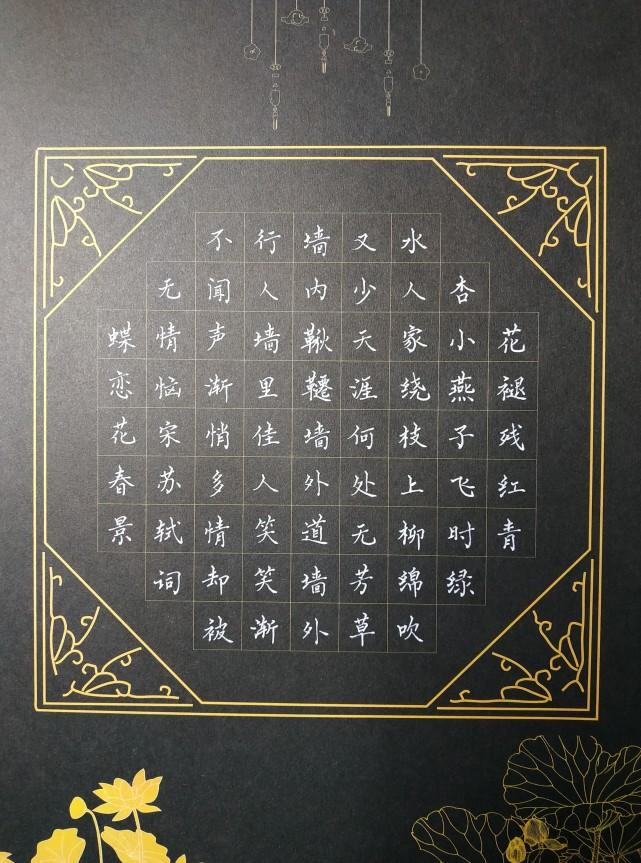 花褪残红青
杏小燕子飞时绿
水人家绕枝上柳绵吹
又少天涯何处无芳草
墙内鞦韆墙外道墙外
行人墙里佳人笑笑渐
不闻声渐悄多情却被
无情恼宋苏轼词
蝶恋花春景